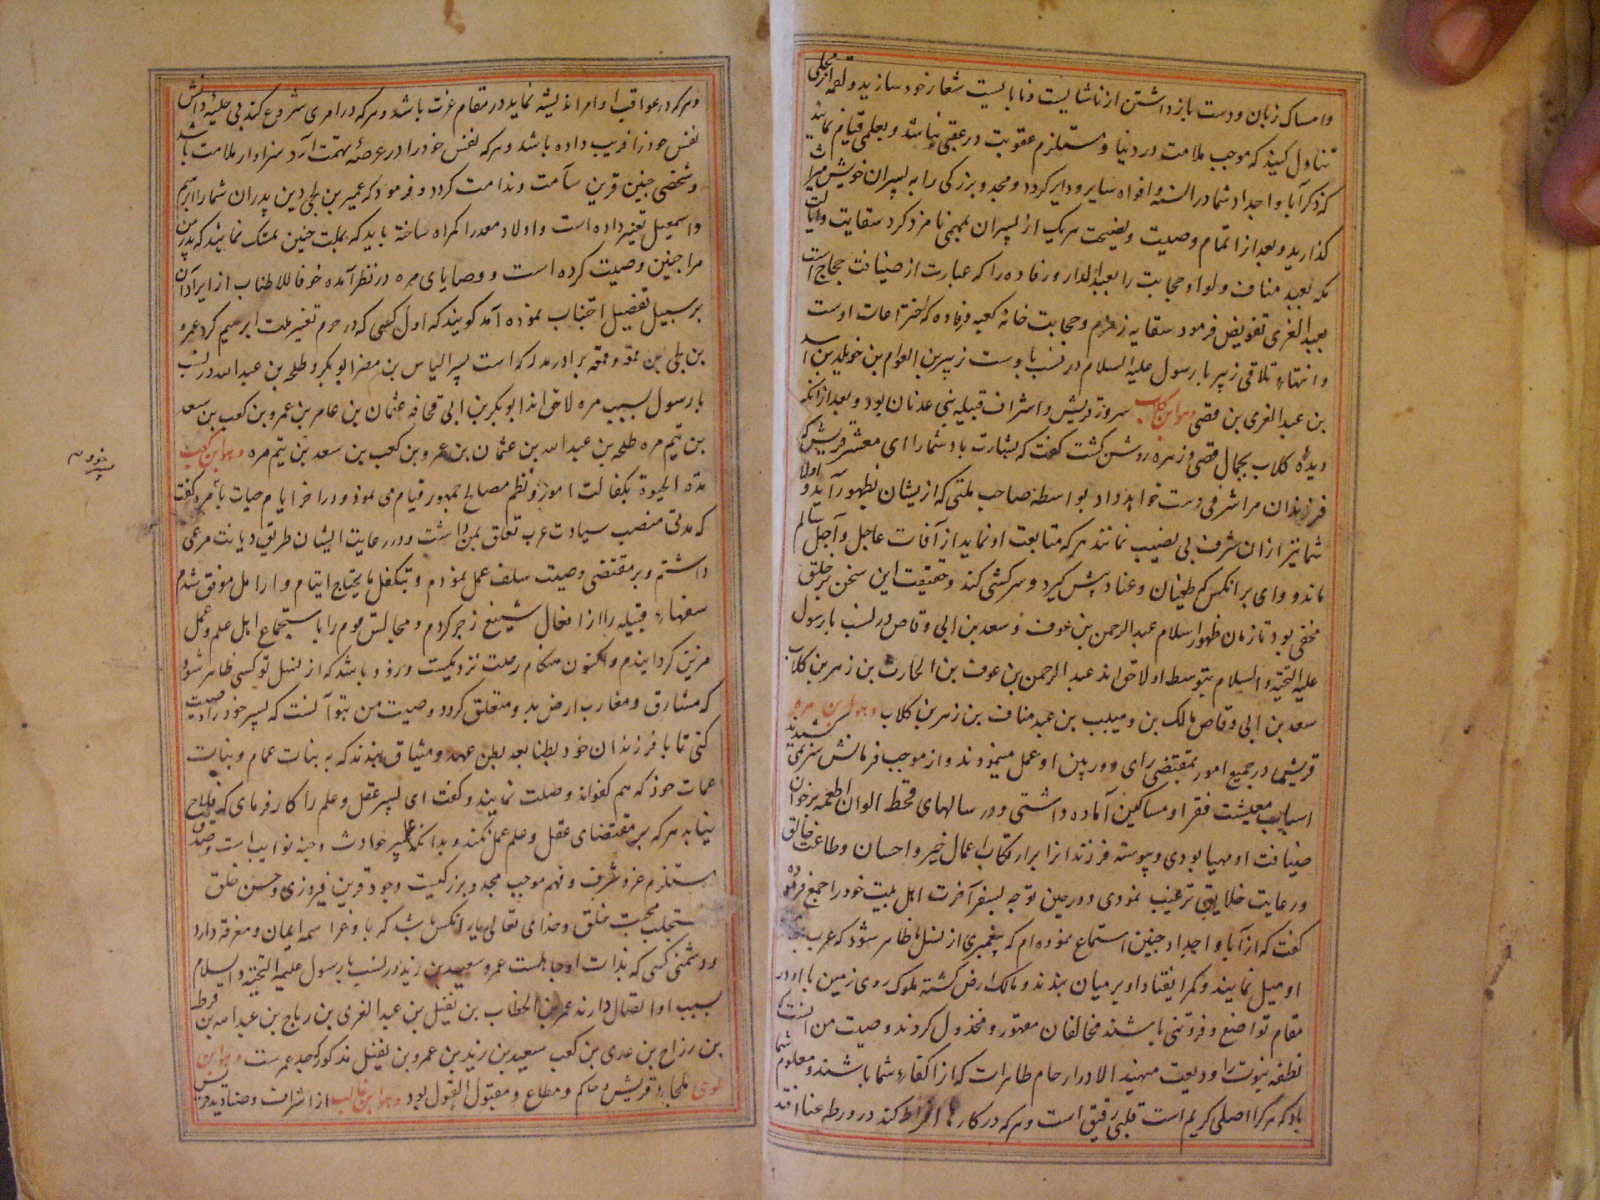 وامساک زبان و دست باز داشتن از ناشایست و نابایست شعار خود سازید و لقمه از محلی
تناول کنید که موجب ملامت در دنیا و مستلزم عقوبت در عقبی نباشد و بعملی قیام نمائید
که ذکر آبا و اجداد شما در السنه و افواه سایر و دایر گردد و مجد و بزرکی را به پسران خویش میراث
گذارید و بعد از اتمام وصیت و نصیحت هر یک از پسران بمهمی نامزد کرد سقایت و ایالت
مکه بعبد مناف و لوا و حجابت را بعبد الدار و رفاده را که عبارت از ضیافت حجاج است
بعبد العزی تفویض فرمود سقایه زمزم و حجابت خانه کعبه و رفاده که اختراعات اوست
و انتهاء تلاقی زبیر با رسول علیه السلام در نسب باوست زبیر بن العوام بن خویلد بن اسد
بن عبد العزی بن قصی وهو ابن کلاب سرور قریش و اشراف قبیله بنی عدنان بود و بعد از انکه
دیدۀ کلاب بجمال قصی و زهره روشن گشت گفت که بشارت باد شما را ای معشر قریش که
فرزندان مرا شرفی دست خواهد داد بواسطه صاحب ملتی که ازیشان بظهور آید و اولاد
شما نیز ازان شرف بی نصیب نمانند هر که متابعت او نماید از آفات عاجل و آجل سالم
ماند و وای بر انکس که طغیان و عناد پیش گیرد و سرکشی کند و حقیقت این سخن بر خلق
مخفی بود تا زمان ظهور اسلام عبد الرحمن بن عوف و سعد بن ابی وقاص در نسب با رسول
علیه التحیة و السلام بتوسط او لاحق اند عبد الرحمن بن عوف بن الحارث بن زهر بن کلاب
سعد بن ابی وقاص مالک بن وهیب بن عبد مناف بن زهر بن کلاب وهو ابن مره
قریش در جمیع امور بمقتضی رای دوربین او عمل مینمودند و از موجب فرمانش سر نمی کشیدند
اسباب معیشت فقرا و مساکین آماده داشتی و در سالهای قحط الوان اطعمه بر خوان
ضیافت او مهیا بودی و پیوسته فرزندانرا بر ارتکاب اعمال خیر و احسان و طاعت خالق
و رعایت خلایق ترغیب نمودی و در حین توجه بسفر آخرت اهل بیت خود را جمع فرموده
گفت که از آبا و اجداد چنین استماع نموده ام که پیغمبری از نسل ما ظاهر شود که عرب
او میل نمایند و کمر انقیاد او بر میان بندند و مالک ارض گشته ملوک روی زمین با او در
مقام تواضع و فروتنی باشند مخالفان مقهور و مخذول گردند وصیت من آنست که
نطفه نبوت را ودیعت منهید الا در ارحام طاهرات که از اکفاء شما باشند و معلوم شما
باد که هر کرا اصلی کریم است قلبی رقیق است و هر که در کارها افراط کند در ورطه عنا افتد
و هر که در عواقب اوامر اندیشه نماید در مقام عزت باشد و هر که در امری شروع کند بی حلیۀ دانش
نفس خود را فریب داده باشد و هر که نفس خود را در عرصۀ تهمت آرد سزاوار ملامت باشد
و شخصی چنین قرین سآمت و ندامت گردد و فرمود که عمیر بن لحی دین پدران شما را ابرهیم
و اسمعیل تغییر داده است و اولاد معد را گمراه ساخته باید که بملت چنین تمسک نمایید که پدر من
مرا چنین وصیت کرده است و وصایای مره در نظر آمده خوفا للاطناب از ایراد آن
بر سبیل تفضیل اجتناب نموده آمد گویند که اول کسی که در حرم تغییر ملت ابرهیم کرد عمرو
بن لحی بن قمعه و قمعه برادر مدرکه است پسر الیاس بن مضر ابوبکر و طلحه بن عبد الله در نسب
با رسول بسبب مره لاحق اند ابوبکر بن ابی قحافه عثمان بن عامر بن عمرو بن کعب بن سعد
بن تیم مره طلحه بن عبد الله بن عثمان بن عمرو بن کعب بن سعد بن تیم مره وهو ابن کعب
مدة الحیوة بکفالت امور و نظم مصالح جمهور قیام می نمود و در اخر ایام حیات با مره گفت
که مدتی منصب سیادت عرب تعلق بمن داشت و در رعایت ایشان طریق دیانت مرعی
داشتم و بر مقتضی وصیت سلف عمل نمودم و بتکفل ما یحتاج ایتام و ارامل موفق شدم
سفهاء قبیله را از افعال شنیع زجر کردم و مجالس قوم را باستجماع اهل علم و عمل
مزین گردانیدم و اکنون هنگام رحلت نزدیکست و زود باشد که از نسل تو کسی ظاهر شود
که مشارق و مغارب ارض بدو متعلق گردد وصیت من بتو آنست که پسر خود را وصیت
کنی تا با فرزندان خود بطنا بعد بطن عهد و میثاق بندند که به بنات عمام و بنات
عمات خود که هم کفو اند وصلت نمایند و گفت ای پسر عقل و علم را کار فرمای که فلاح
نیابد هر که بر مقتضای عقل و علم عمل نکند و بدانکه علم سپر حوادث و جنه نوایب است و صدق
مستلزم عز و شرف و فهم موجب مجد و بزرکیست وجود قرین فیروزی و حسن خلق
مستجلب محبت خلق و خدای تعالی یار انکس باشد که با وغرا سمه ایمان و معرفة دارد
و دشمن کسی که بذات او جاهلست عمر و سعید بن زید در نسب با رسول علیه التحیة و السلام
بسبب او اتصال دارند عمر بن الخطاب بن نفیل بن عبد العزی بن رباح بن عبد الله بن قرطه
بن رزاح بن عدی بن کعب سعید بن زید بن عمرو بن نفیل مذکور که جد عمرست وهو ابن
لوی ملجاء قریش و حاکم و مطاع و مقبول القول بود وهو ابن غالب از اشراف و صنادید قریش